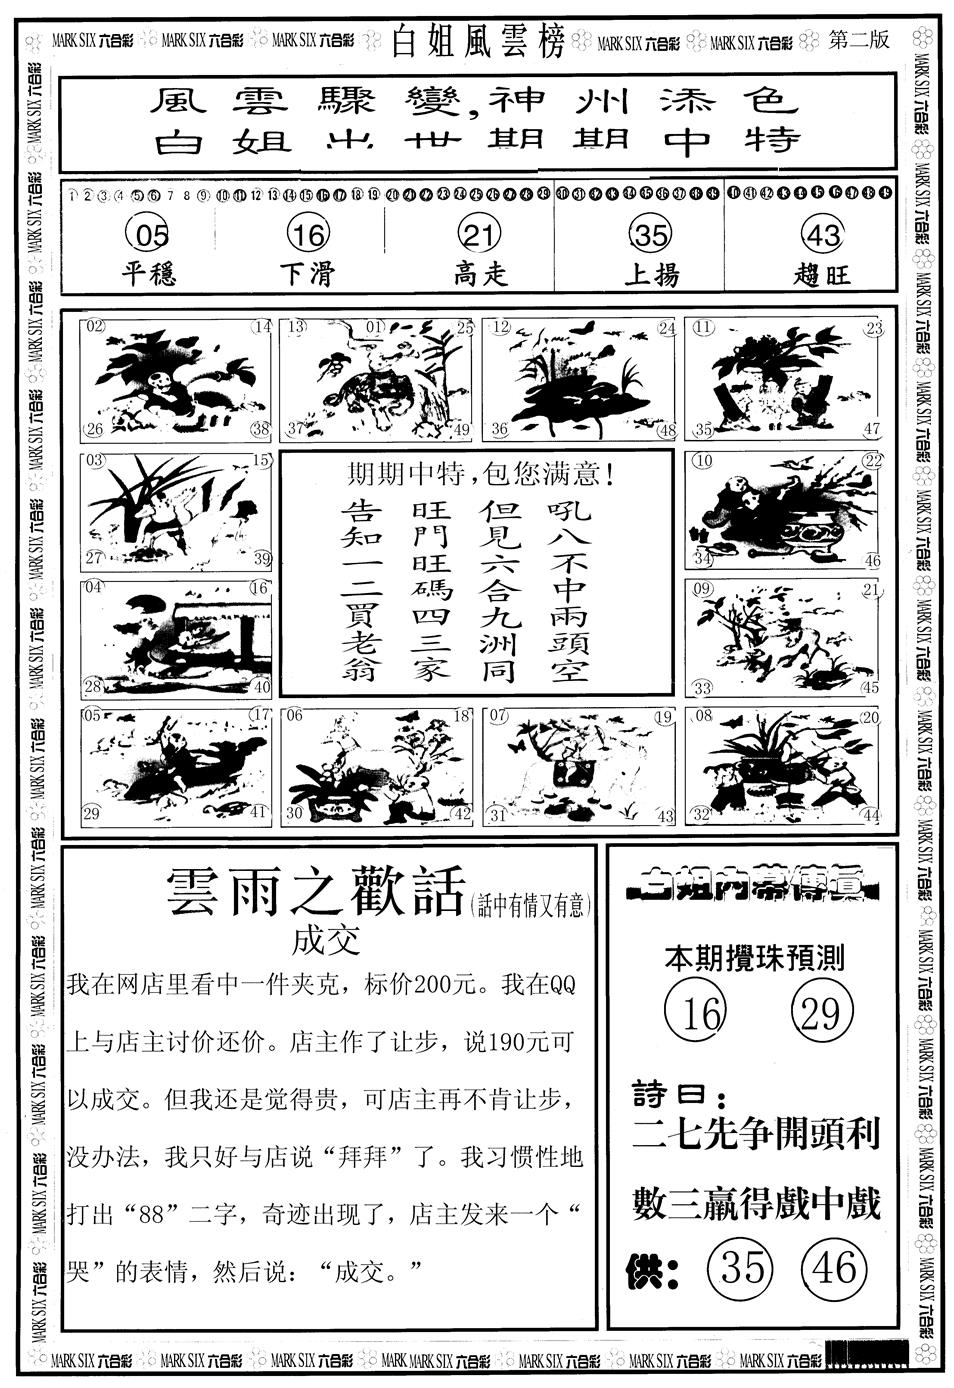 MARK SIX 六合彩 MARK SIX 六合彩 MARK SIX 六合彩 白姐風雲榜 MARK SIX 六合彩 MARK SIX 六合彩 第二版
風雲驟變,神州添色
白姐出世期期中特
1 2 3 4 5 6 7 8 9 10 11 12 13 14 15 16 17 18 19 20 21 22 23 24 25 26 27 28 29 30 31 32 33 34 35 36 37 38 39 40 41 42 43 44 45 46 47 48 49
05 16 21 35 43
平穩 下滑 高走 上揚 趨旺
02 14 13 01 25 12 24 11 23
26 38 37 49 36 48 35 47
03 15
27 39
04 16
28 40
期期中特,包您满意!
吼八不中兩頭空
但見六合九洲同
旺門旺碼四三家
告知一二買老翁
10 22
34 46
09 21
33 45
05 17 06 18 07 19 08 20
29 41 30 42 31 43 32 44
雲雨之歡話(話中有情又有意)
成交
我在网店里看中一件夹克，标价200元。我在QQ
上与店主讨价还价。店主作了让步，说190元可
以成交。但我还是觉得贵，可店主再不肯让步，
没办法，我只好与店说“拜拜”了。我习惯性地
打出“88”二字，奇迹出现了，店主发来一个“
哭”的表情，然后说：“成交。”
白姐内幕傳真
本期攪珠預測
16 29
詩曰:
二七先争開頭利
數三贏得戲中戲
供: 35 46
MARK SIX 六合彩 MARK SIX 六合彩 MARK SIX 六合彩 MARK MARK SIX 六合彩 MARK SIX 六合彩 MARK SIX 六合彩 MARK SIX 六合彩